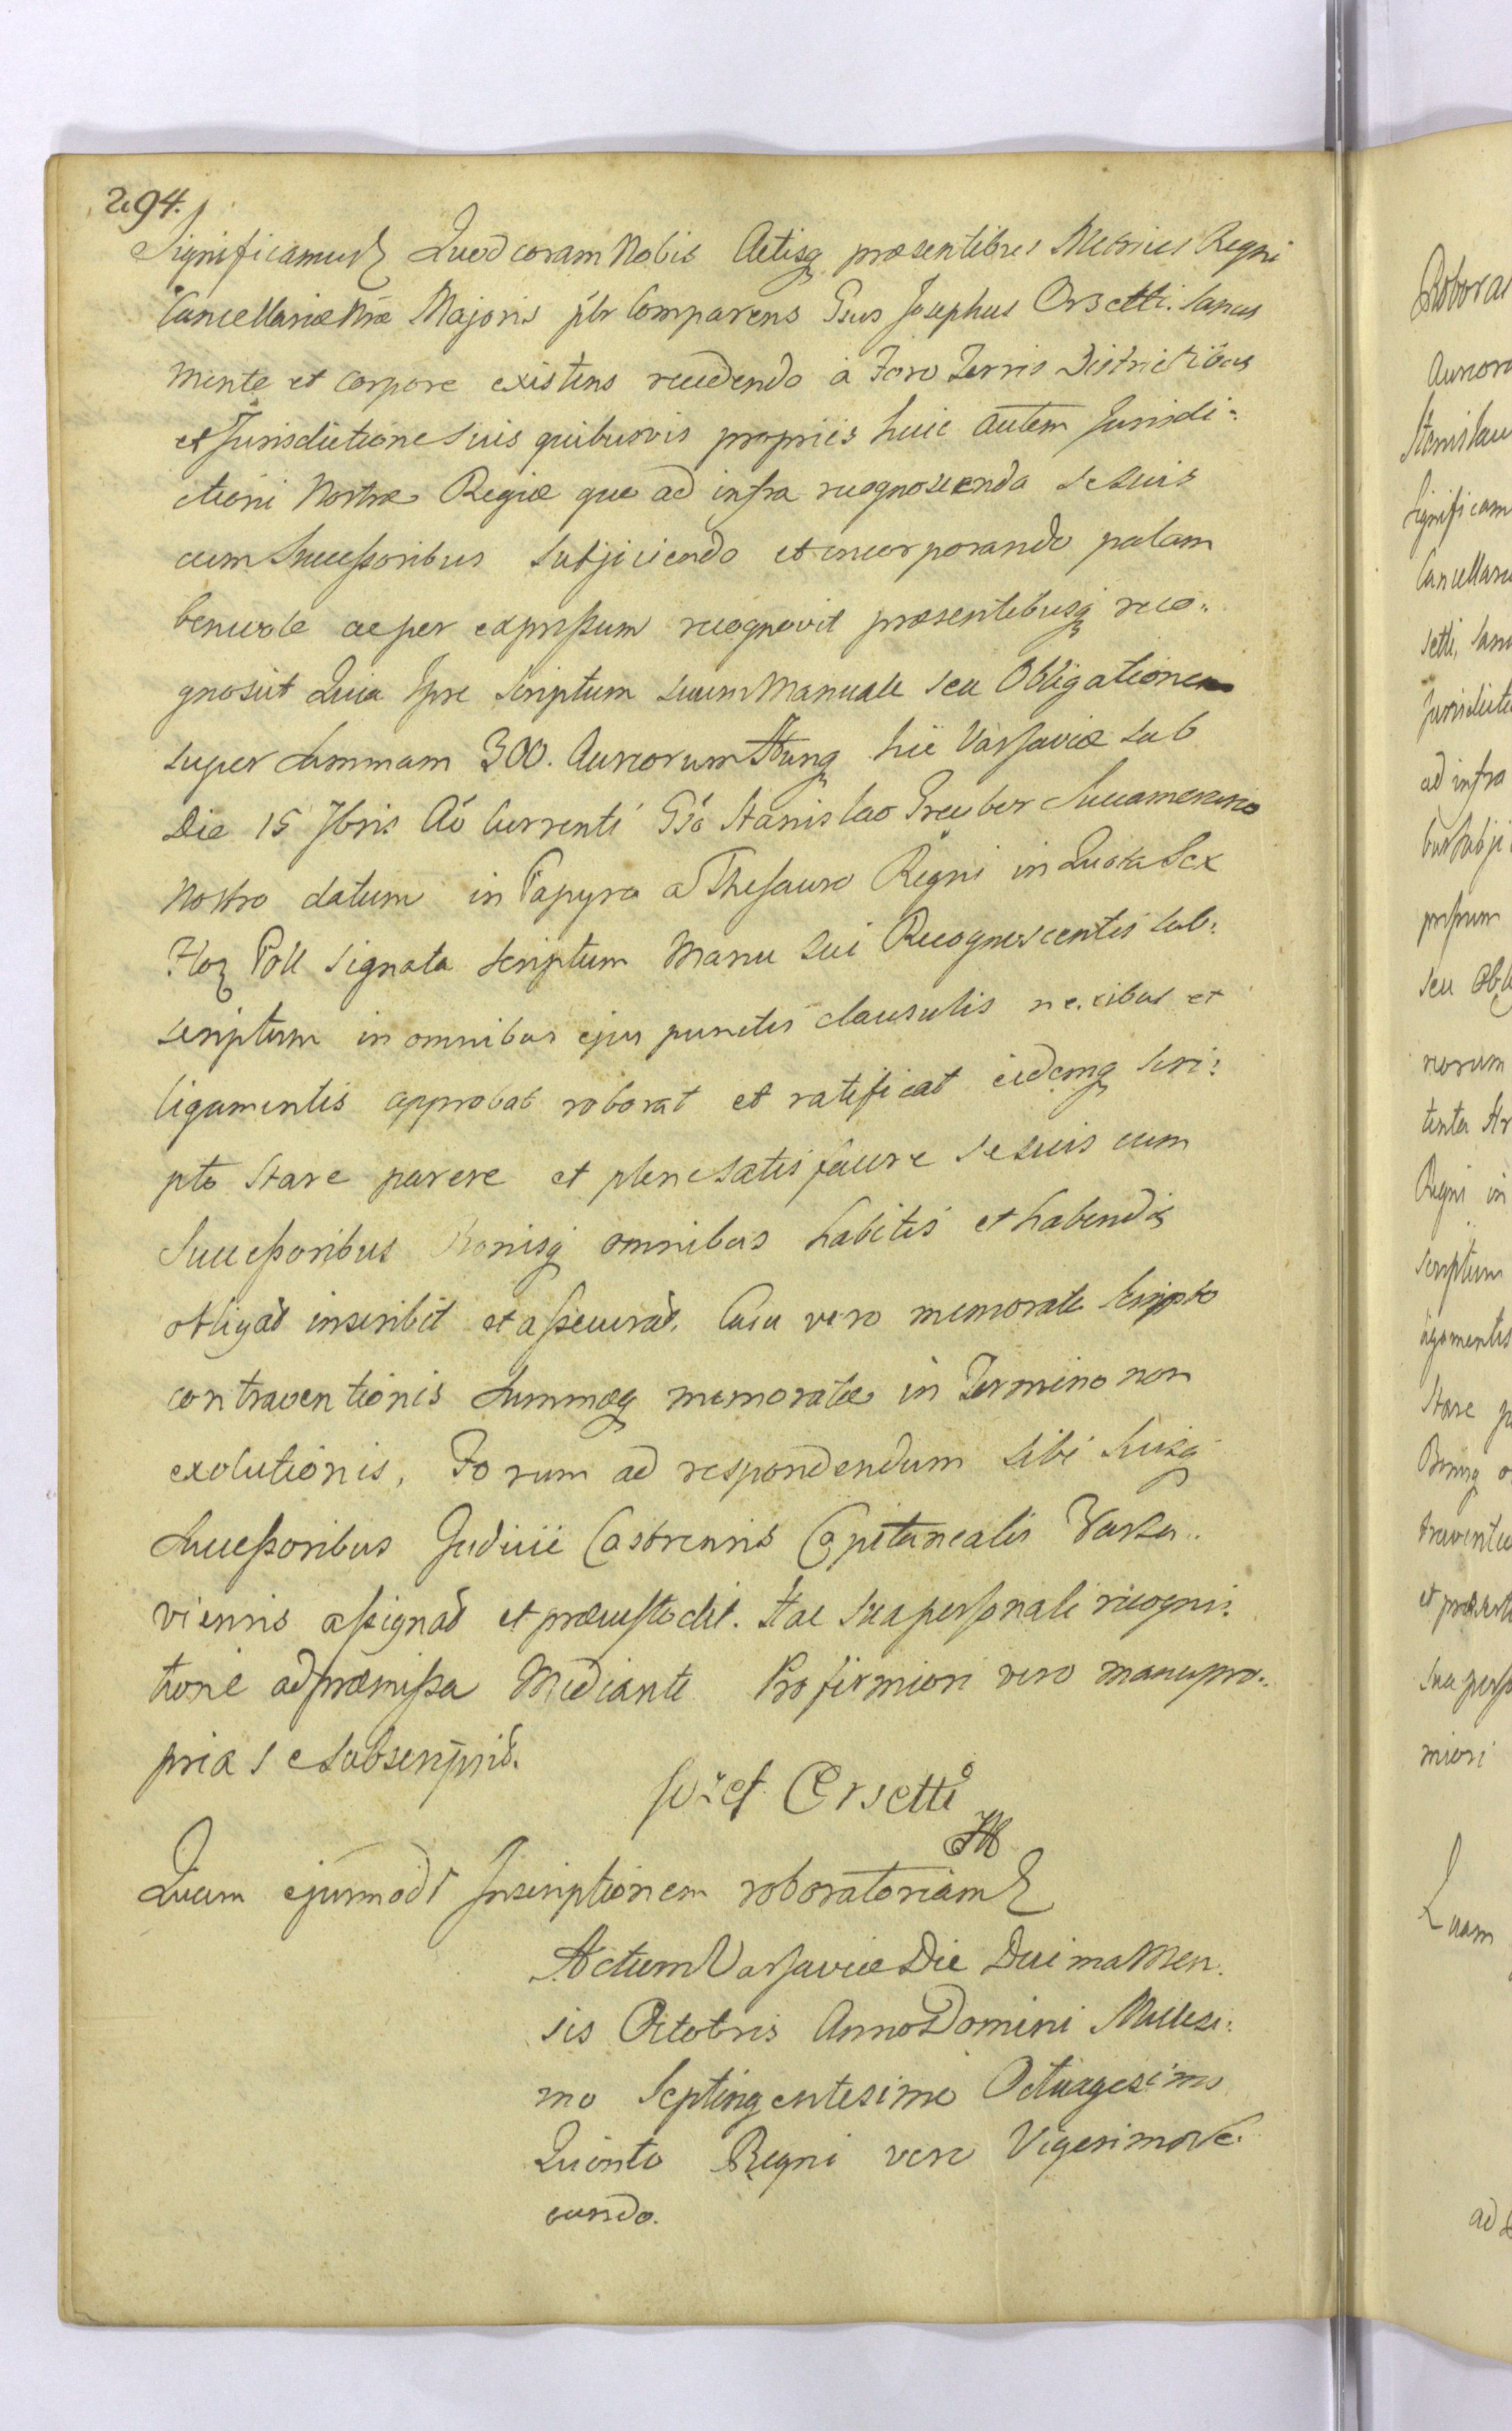 294.
Significamus Quod coram Nobis Actisq præsentibus Metrices Regni
Cancellariæ Nræ Majoris plr Comparens Gsus Josephus Orsetti. Sanus
Mente et Corpore existens recedendo à Foro Terris Districtibus
et Jurisdictione suis quibusvis propriis huic autem Jurisdi:
ctioni Nostræ Regiæ quo ad infra recognoscenda se suis
cum Succeßoribus subjiciendo et incorporando palam
benevole ac per expreßum recognovit præsentibusq reco:
gnoscit Quia Ipse Scriptum suum Manuale seu Obligationem
super Summam 300. Aureorum Hung hic Varsaviæ sub
Die 15 7bris Aō Currenti Gsō Stanislao Greyber Succamerario
Nostro datum in Papyro a Thesauro Regni in Quota Sex
Flor Poll signata scriptum Manu sui Recognoscentis sub:
scriptum in omnibus ejus punctis clausulis nexibus et
ligamentis approbat roborat et ratificat eidemq Scri:
pto Stare parere et plene satisfacere se suis cum
Succeßoribus Bonisq omnibus habitis et habendis
obligat inscribit et aßecurat. Casu vero memorato Scripto
contraventionis Summæq memoratæ in Termino non
exolutionis, Forum ad respondendum sibi Suisq
Succeßoribus Judicii Castrensis Capitanealis Varsa:
viensis aßignat et præcustodit. Hac sua personali recogni:
tione ad præmißa Mediante Pro firmiori vero manu pro:
pria se subscripsit.
Jozef Orsetti
Quam ejusmodi Inscriptionem roboratoriam
Actum Varsaviæ Die Decima Men:
sis Octobris Anno Domini Millesi:
mo Septingentesimo Octuagesimo
Quinto Regni vero Vigesimo Se:
cundo.
Aureor
Stanislau
Significam
Cancellari
setti, San
ad infra
seu Obl
reorum
Regni in
Scriptum
igamentis
Stare p
Bonisq o
sua perso
miori
Quam